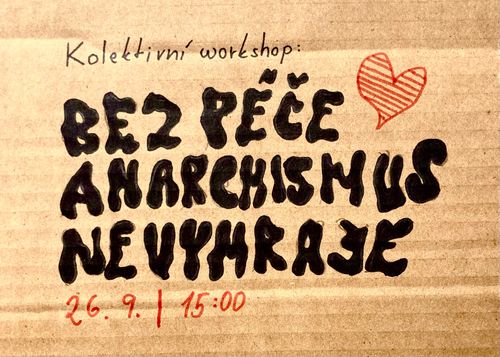 Kolektivní workshop:
BEZ PÉČE
ANARCHISMUS
NEVYHRAJE
26. 9. | 15:00